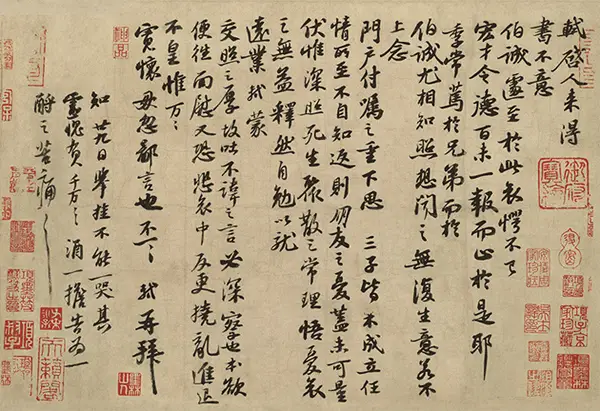 軾啓人來得
書不意
伯誠遽至於此哀愕不已
宏才令德百未一報而止於是耶
季常篤於兄弟而於
伯誠尤相知照想聞之無復生意若不
上念
門戶付囑之重下思三子皆未成立任
情所至不自知返則朋友之憂蓋未可量
伏惟深照死生聚散之常理悟憂哀
之無益釋然自勉以就
遠業軾蒙
交照之厚故吐不諱之言必深察也本欲
便往面慰又恐悲哀中反更撓亂進退
不皇惟万〻
寬懷毋忽鄙言也不一〻軾再拜
知廿九日舉挂不能一哭其
靈愧負千万〻〻酒一擔告為一
酹之苦痛〻〻